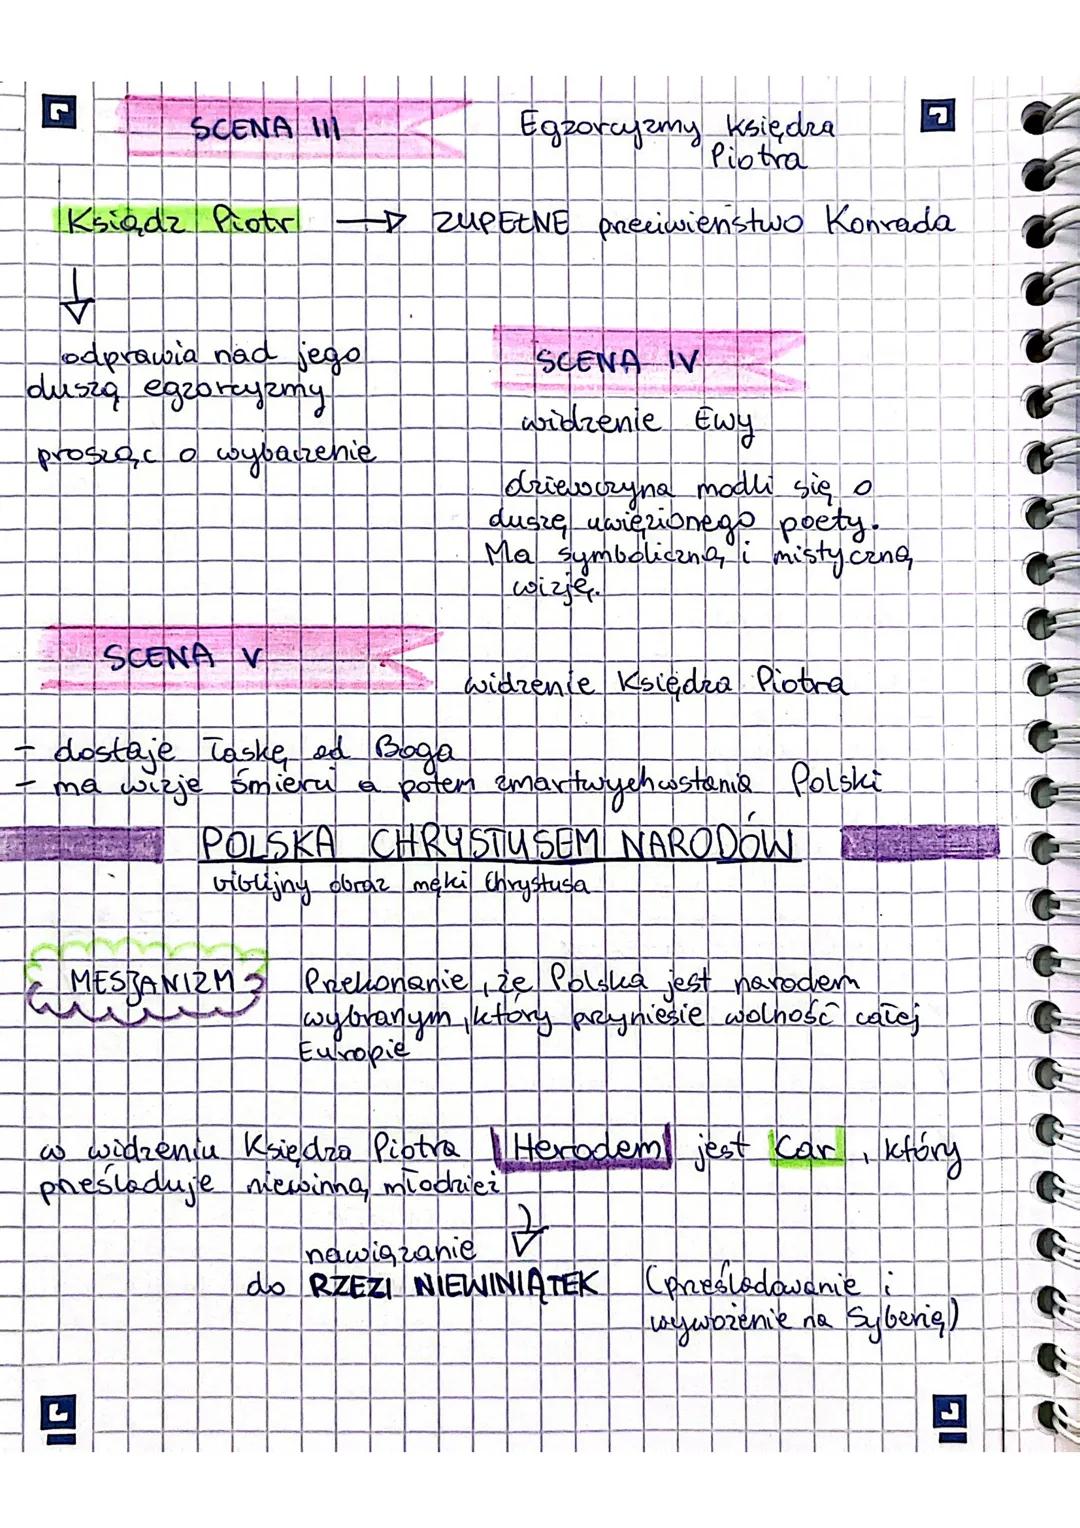 SCENA III
Egzorcyzmy Księdza
Piotra
Ksiądz Piotr → ZUPEŁNE przeciwieństwo Konrada
odprawia nad jego
duszą egzorcyzmy
prosząc o wybaczenie
SCENA IV
widzenie Ewy
dziewczyna modli się o
duszę uwięzionego poety.
Ma symboliczną i mistyczną
wizję.
SCENA V
widzenie Księdza Piotra
- dostaje łaskę od Boga
- ma wizje śmierci a potem zmartwychwstania Polski
POLSKA CHRYSTUSEM NARODÓW
biblijny obraz męki Chrystusa
MESJANIZM
Przekonanie, że Polska jest narodem
wybranym, który przyniesie wolność całej
Europie
w widzeniu Księdza Piotra Herodem jest Car, który
prześladuje niewinną młodzież
nawiązanie
do RZEZI NIEWINIĄTEK (prześladowanie i
wywożenie na Syberię)